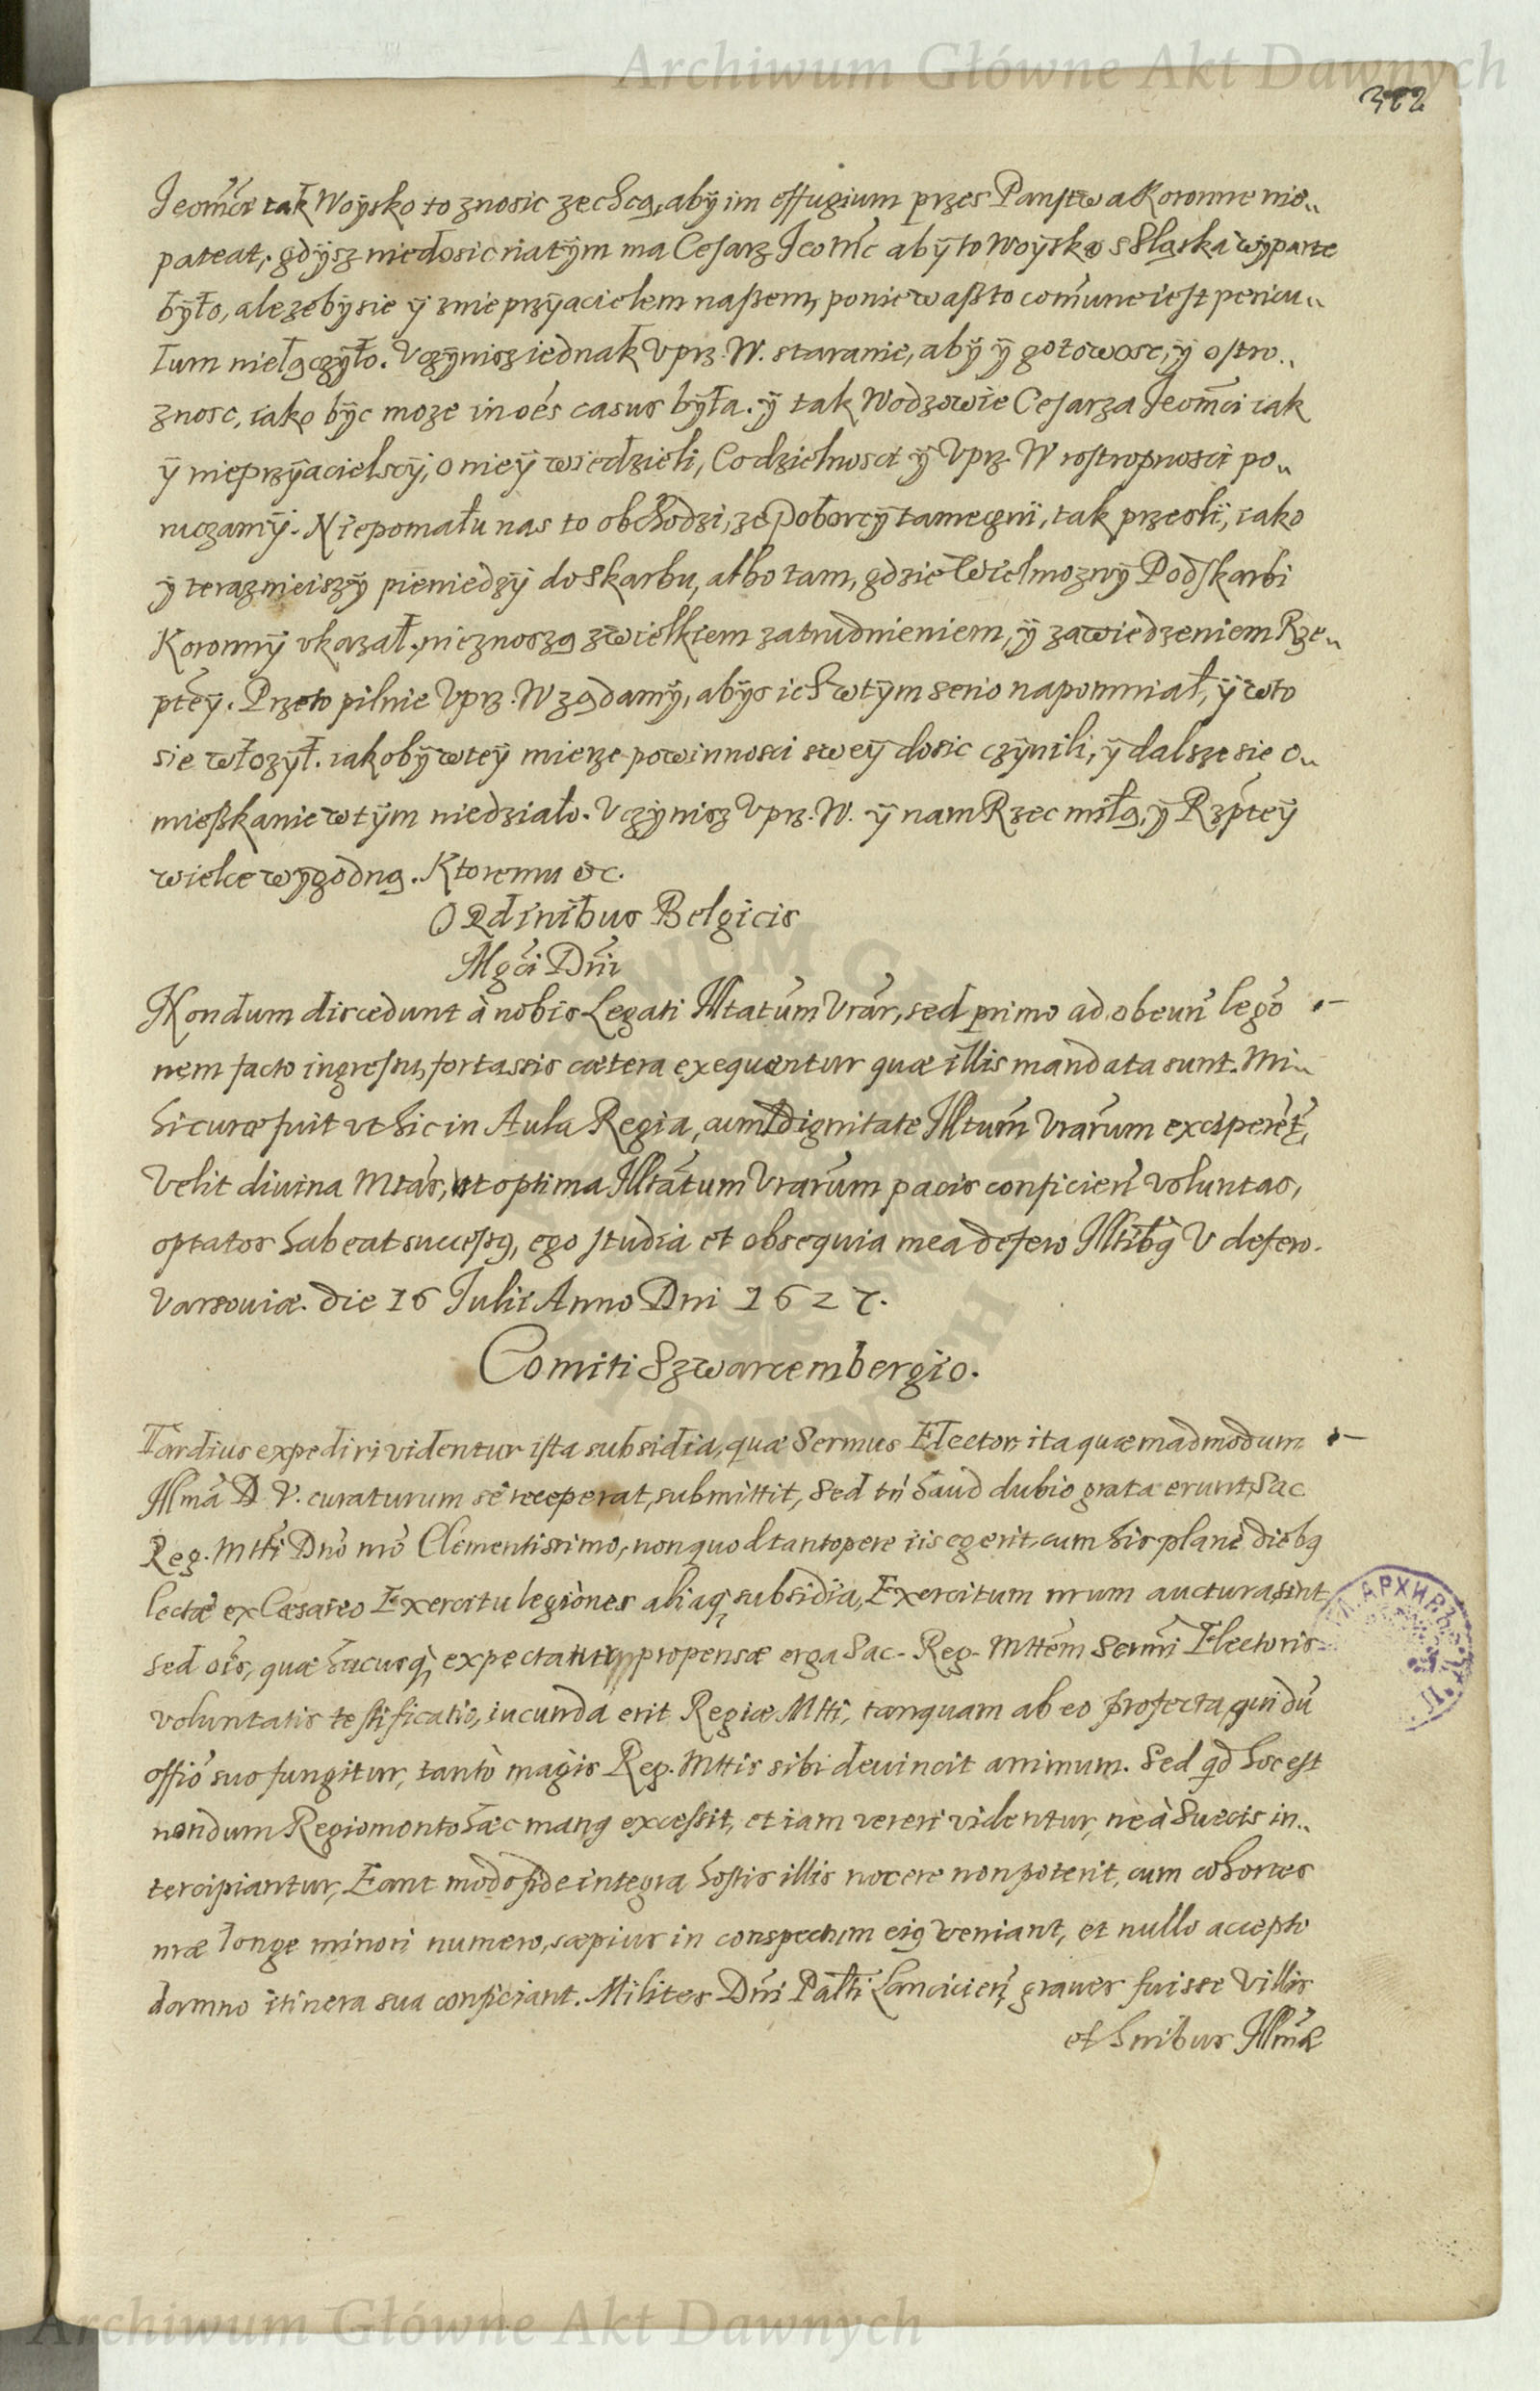 Archiwum Główne Akt Dawnych
Jeom̃ci tak Woÿsko to znosic zechcą, abÿ im effugium przes Panstwa Koronne nie„
pateat, gdÿsz niedosic natÿm ma Cesarz Jeom̃c abÿ to Woÿsko s Slaska wÿparte
bÿło, ale zebÿ sie ÿ z nieprzÿacielem naßem, poniewaß to com̃une iest pericu„
lum niełączÿło. Vczÿnisz iednak Vprz. W. staranie, abÿ ÿ gotowosc, ÿ ostro„
znosc, iako bÿc moze in oẽs casus bÿła. ÿ tak Wodzowie Cesarza Jeom̃ci iak
ÿ nieprzÿacielscÿ, o nieÿ wiedzieli, Co dzielnosci ÿ Vprz. W rostropnosci po„
ruczamÿ. Niepomału nas to obchodzi, ze Poborcÿ tamecgni, tak przesli, iako
ÿ teraznieiszÿ pieniedzÿ do Skarbu, albo tam, gdzie Wielmoznÿ Podskarbi
Koronnÿ vkazał, nieznoszą z wielkiem zatrudnieniem, ÿ zawiedzeniem Rze„
ptey. Przeto pilnie Vprz. W ządamÿ, abÿs ich w tÿm serio napomniał, ÿ w to
sie włozÿł. iakobÿ w teÿ mierze powinnosci sweÿ dosic czÿnili, ÿ dalsze sie o„
mießkanie w tÿm niedziało. Vczÿnisz Vprz. W. ÿ nam Rzec miłą, ÿ Rzpteÿ
wielce wÿgodną. Ktoremu etc.
Ordinibus Belgicis
Mgci Dñi
Nondum discedunt à nobis Legati Illtatum Vrar̃, sed primo ad obeuñ lego
nem facto ingressu, fortassis cætera exequentur quæ illis mandata sunt. Mi„
hi curæ fuit vt hic in Aula Regia, cum dignitate Illtum̃ Vrarum exciperet̃,
Velit diuina Mtas, vt optima Illtatum Vrarum pacis conficieñ voluntas,
optatos habeat successus, ego studia et obsequia mea defero Illtibq V defero.
Varsouiæ. die 16 Julii Anno Dni 1627.
Comiti Szwarcembergio.
Tardius expediri videntur ista subsidia, quæ Sermus Elector, ita quæmadmodum
Illmã D V. curaturum se receperat, submittit, Sed tñ haud dubio grata erunt, Sac
Reg. Mtti Dnõ mõ Clementissimo, non quod tantopere iis egerit, cum his planè diebq
lectæ ex Cæsareo Exercitu legiones aliaq subsidia, Exercitum nrum aucturæ sint
Sed oĩs, quæ hucusq expectatur propensæ erga Sac. Reg. Mttẽm Sermi Electoris
voluntatis testificatio, iucunda erit Regiæ Mtti, tanquam ab eo profecta, qui dũ
offiõ suo fungitur, tantò magis Reg. Mttis sibi deuincit animum. Sed qd hoc est
nondum Regiomonto hæc manq excessit, et iam vereri videntur, ne à Suecis in„
tercipiantur, Eant modo fide integra hostis illis nocere non poterit, cum cohortes
nræ longe minori numero, sæpius in conspectum eiq veniant, et nullo accepto
damno itinera sua conficiant. Milites Dñi Paltĩ Lancicieñ graues fuisse Villis
et Illmæ
Archiwum Główne Akt Dawnych